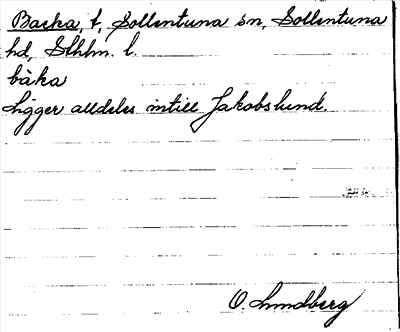 Backa, t, Sollentuna sn, Sollentuna
hd, Sthlm. l.
båka
Ligger alldeles intill Jakobslund.
O. Lundberg